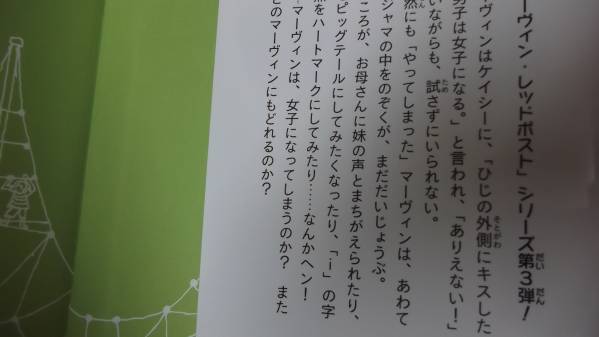 ーヴィン・レッドポスト」シリーズ第3弾!
ーヴィンはケイシーに、「ひじの外側にキスした
男子は女子になる。」と言われ、「ありえない!」
いながらも、試さずにいられない。
然にも「やってしまった」マーヴィンは、あわて
ジャマの中をのぞくが、まだだいじょうぶ。
ころが、お母さんに妹の声とまちがえられたり、
ピッグテールにしてみたくなったり、「i」の字
点をハートマークにしてみたり……なんかヘン!
マーヴィンは、女子になってしまうのか? また
とのマーヴィンにもどれるのか?